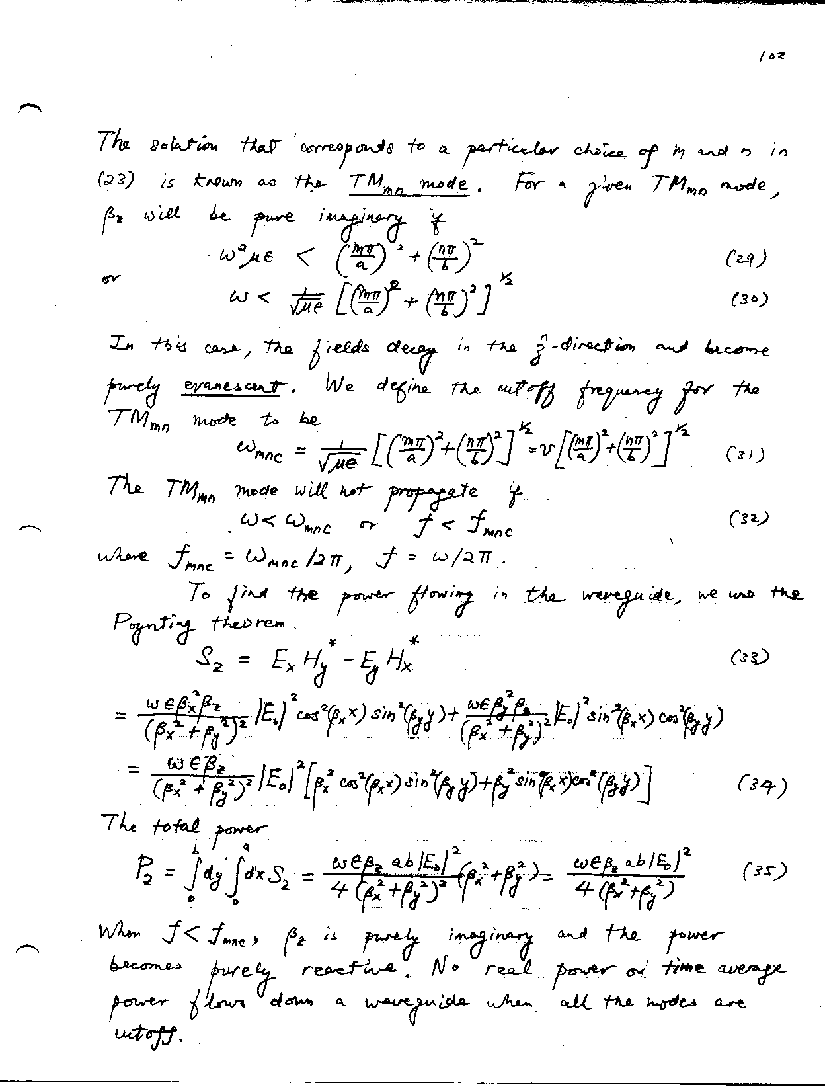 102
The solution that corresponds to a particular choice of m and n in
(23) is known as the TMₘₙ mode. For a given TMₘₙ mode,
βz will be pure imaginary if
ω²με < (mπ/a)² + (nπ/b)² (29)
or
ω < 1/√με [(mπ/a)² + (nπ/b)²]^½ (30)
In this case, the fields decay in the ẑ-direction and become
purely evanescent. We define the cutoff frequency for the
TMₘₙ mode to be
ωmnc = 1/√με [(mπ/a)² + (nπ/b)²]^½ = v[(mπ/a)² + (nπ/b)²]^½ (31)
The TMₘₙ mode will not propagate if
ω < ωmnc or f < fmnc (32)
where fmnc = ωmnc/2π, f = ω/2π.
To find the power flowing in the waveguide, we use the
Poynting theorem.
Sz = Ex Hy* − Ey Hx* (33)
= ωεβx²βz/(βx² + βy²)² |E₀|² cos²(βx x) sin²(βy y) + ωεβy²βz/(βx² + βy²)² |E₀|² sin²(βx x) cos²(βy y)
= ωεβz/(βx² + βy²)² |E₀|² [βx² cos²(βx x) sin²(βy y) + βy² sin²(βx x) cos²(βy y)] (34)
The total power
Pz = ∫₀ᵇ dy ∫₀ᵃ dx Sz = ωεβz ab|E₀|²/4(βx² + βy²)² (βx² + βy²) = ωεβz ab|E₀|²/4(βx² + βy²) (35)
When f < fmnc, βz is purely imaginary and the power
becomes purely reactive. No real power or time average
power flows down a waveguide when all the modes are
cutoff.